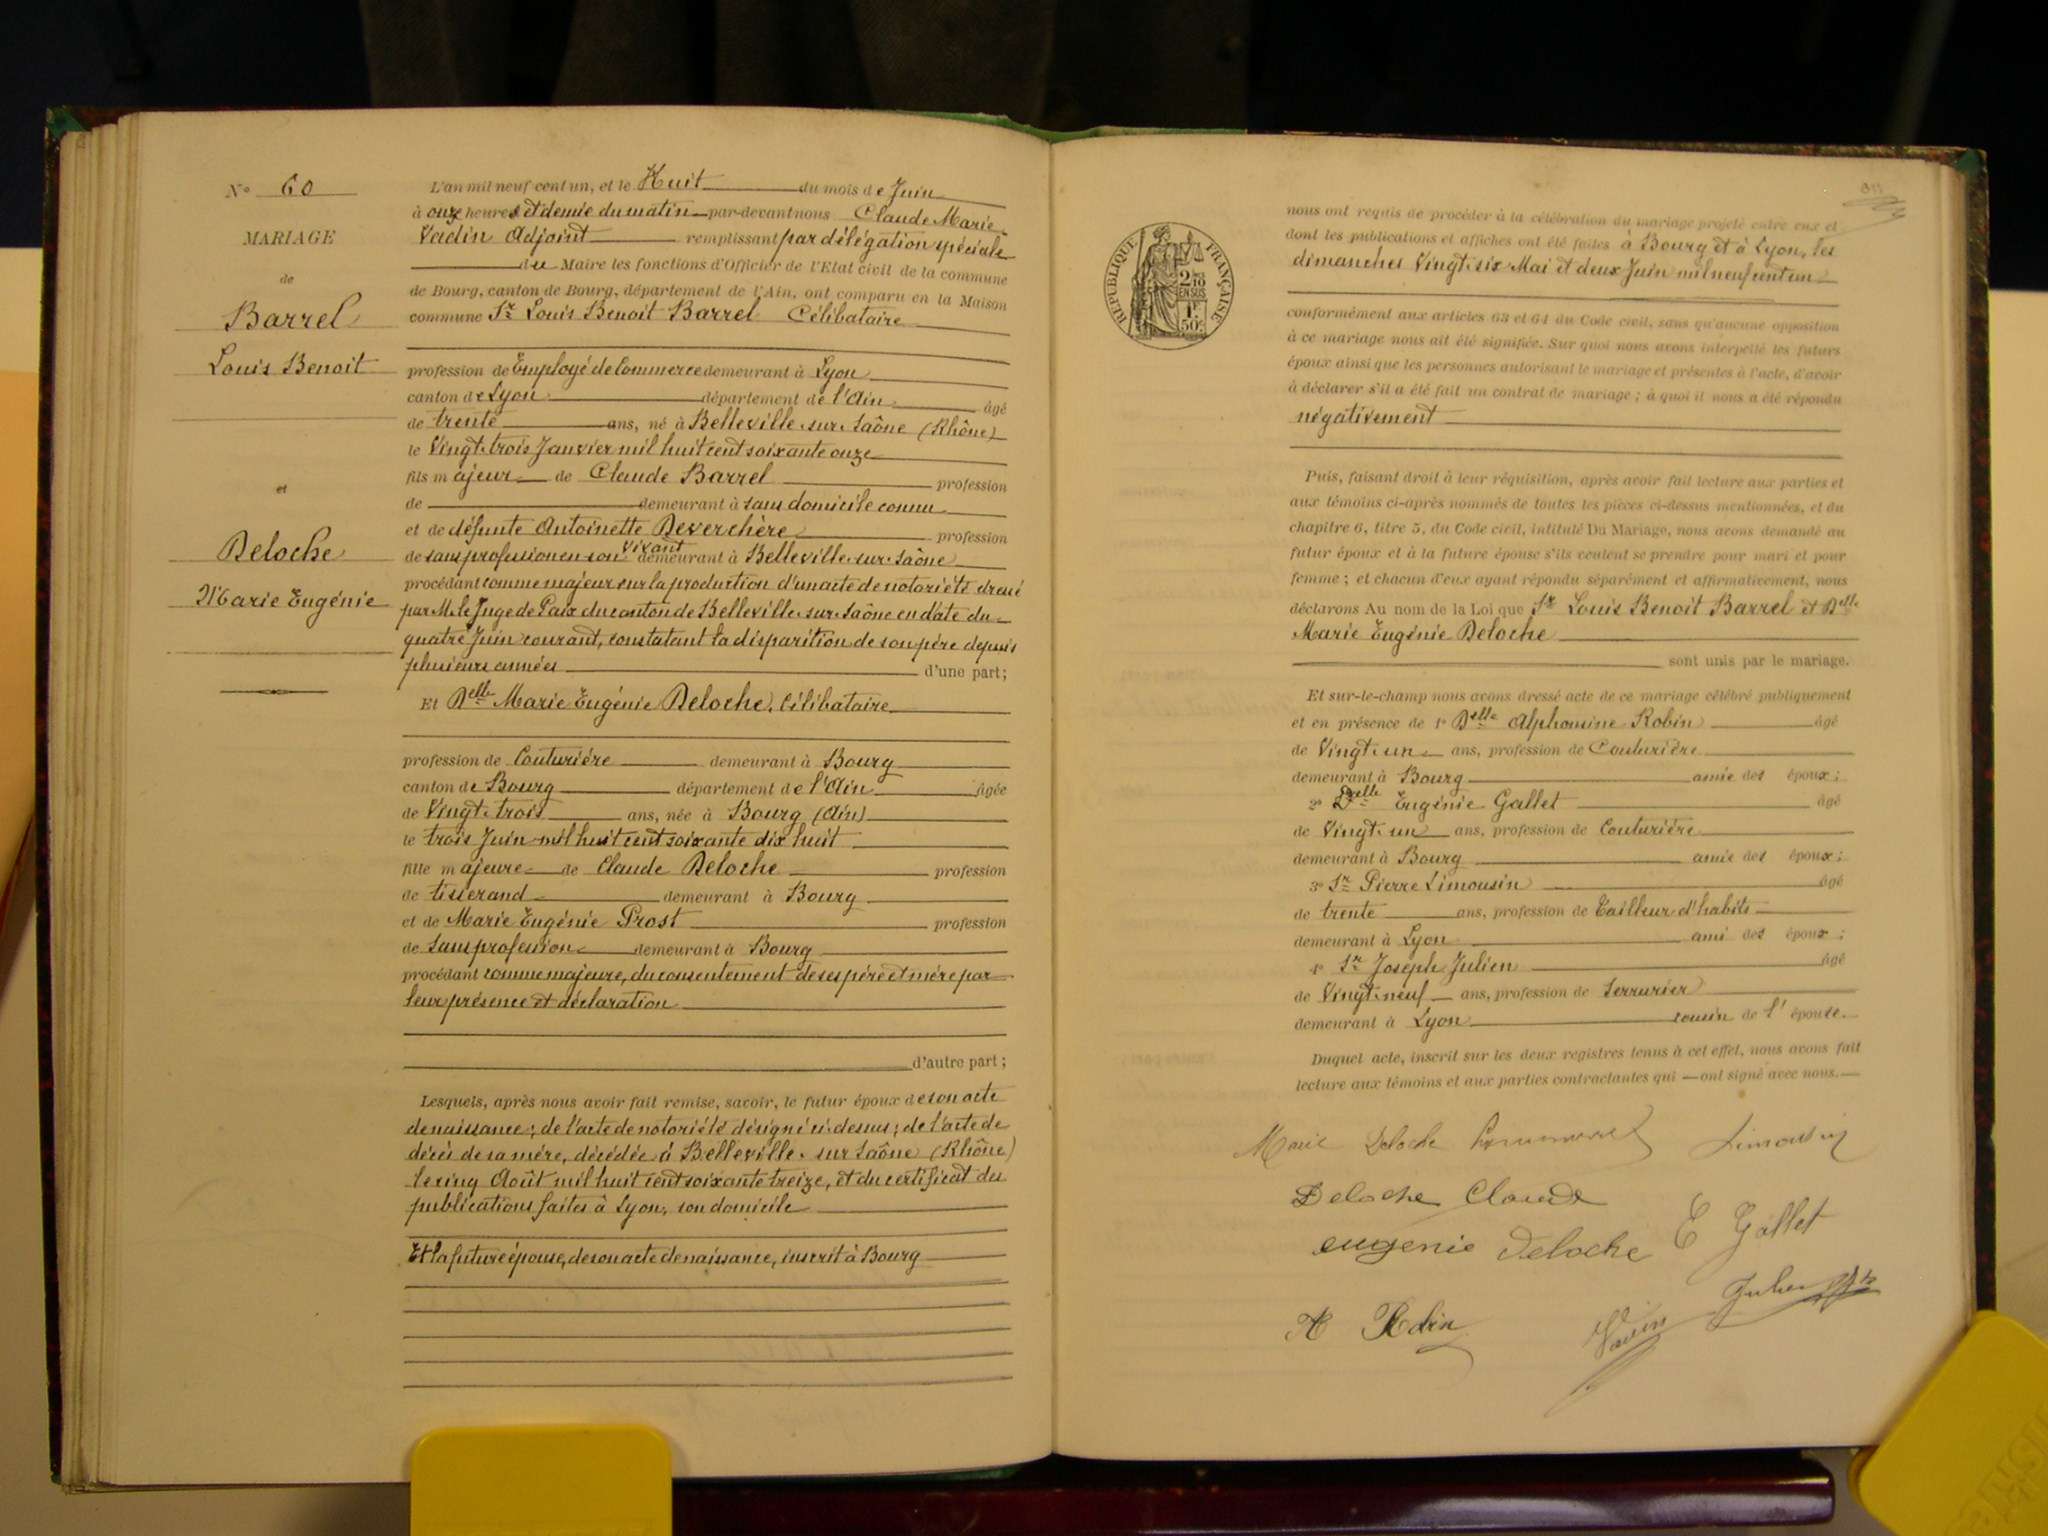 N° 60
MARIAGE
de
Barrel
Louis Benoit
et
Deloche
Marie Eugénie
L'an mil neuf cent un, et le Huit du mois de Juin
à onze heures et demie du matin par-devant nous Claude Marie
Vadin Adjoint remplissant par délégation spéciale
du Maire les fonctions d'Officier de l'Etat civil de la commune
de Bourg, canton de Bourg, département de l'Ain, ont comparu en la Maison
commune Sr Louis Benoit Barrel Célibataire
profession de Employé de Commerce demeurant à Lyon
canton de Lyon département de l'Ain âgé
de trente ans, né à Belleville-sur-Saône (Rhône)
le Vingt-trois Janvier mil huit cent soixante onze
fils majeur de Claude Barrel profession
de demeurant à sans domicile connu
et de défunte Antoinette Deverchère profession
de sans profession en son vivant demeurant à Belleville-sur-Saône
procédant comme majeur sur la production d'un acte de notoriété dressé
par M. le Juge de Paix du canton de Belleville-sur-Saône en date du
quatre Juin courant, constatant la disparition de son père depuis
plusieurs années d'une part;
Et Delle Marie Eugénie Deloche, Célibataire
profession de Couturière demeurant à Bourg
canton de Bourg département de l'Ain âgée
de Vingt-trois ans, née à Bourg (Ain)
le trois Juin mil huit cent soixante dix huit
fille majeure de Claude Deloche profession
de tisserand demeurant à Bourg
et de Marie Eugénie Prost profession
de Sans profession demeurant à Bourg
procédant comme majeure, du consentement de ses père et mère par
leur présence et déclaration
d'autre part;
Lesquels, après nous avoir fait remise, savoir, le futur époux de son acte
de naissance; de l'acte de notoriété désigné ci-dessus; de l'acte de
décès de sa mère, décédée à Belleville-sur-Saône (Rhône)
le cinq Août mil huit cent soixante treize, et du certificat des
publications faites à Lyon, son domicile
Et la future épouse, de son acte de naissance, inscrit à Bourg
RÉPUBLIQUE FRANÇAISE
2/10
EN SUS
1F
50c
nous ont requis de procéder à la célébration du mariage projeté entre eux et
dont les publications et affiches ont été faites à Bourg et à Lyon, les
dimanches Vingt-six Mai et deux Juin mil neuf cent un
conformément aux articles 63 et 64 du Code civil, sans qu'aucune opposition
à ce mariage nous ait été signifiée. Sur quoi nous avons interpellé les futurs
époux ainsi que les personnes autorisant le mariage et présentes à l'acte, d'avoir
à déclarer s'il a été fait un contrat de mariage; à quoi il nous a été répondu
négativement
Puis, faisant droit à leur réquisition, après avoir fait lecture aux parties et
aux témoins ci-après nommés de toutes les pièces ci-dessus mentionnées, et du
chapitre 6, titre 5, du Code civil, intitulé Du Mariage, nous avons demandé au
futur époux et à la future épouse s'ils veulent se prendre pour mari et pour
femme; et chacun d'eux ayant répondu séparément et affirmativement, nous
déclarons Au nom de la Loi que Sr Louis Benoit Barrel et Delle
Marie Eugénie Deloche
sont unis par le mariage.
Et sur-le-champ nous avons dressé acte de ce mariage célébré publiquement
et en présence de 1° Delle Alphonsine Robin âgé
de Vingt-un ans, profession de Couturière
demeurant à Bourg amie des époux;
2° Delle Eugénie Gallet âgé
de Vingt-un ans, profession de Couturière
demeurant à Bourg amie des époux;
3° Sr Pierre Limousin âgé
de trente ans, profession de Tailleur d'habits
demeurant à Lyon ami des époux;
4° Sr Joseph Julien âgé
de Vingt-neuf ans, profession de Serrurier
demeurant à Lyon cousin de l'épouse.
Duquel acte, inscrit sur les deux registres tenus à cet effet, nous avons fait
lecture aux témoins et aux parties contractantes qui ont signé avec nous.
Marie Deloche Limousin
Deloche Claude
eugenie Deloche E Gallet
Julien
A Robin Vadin